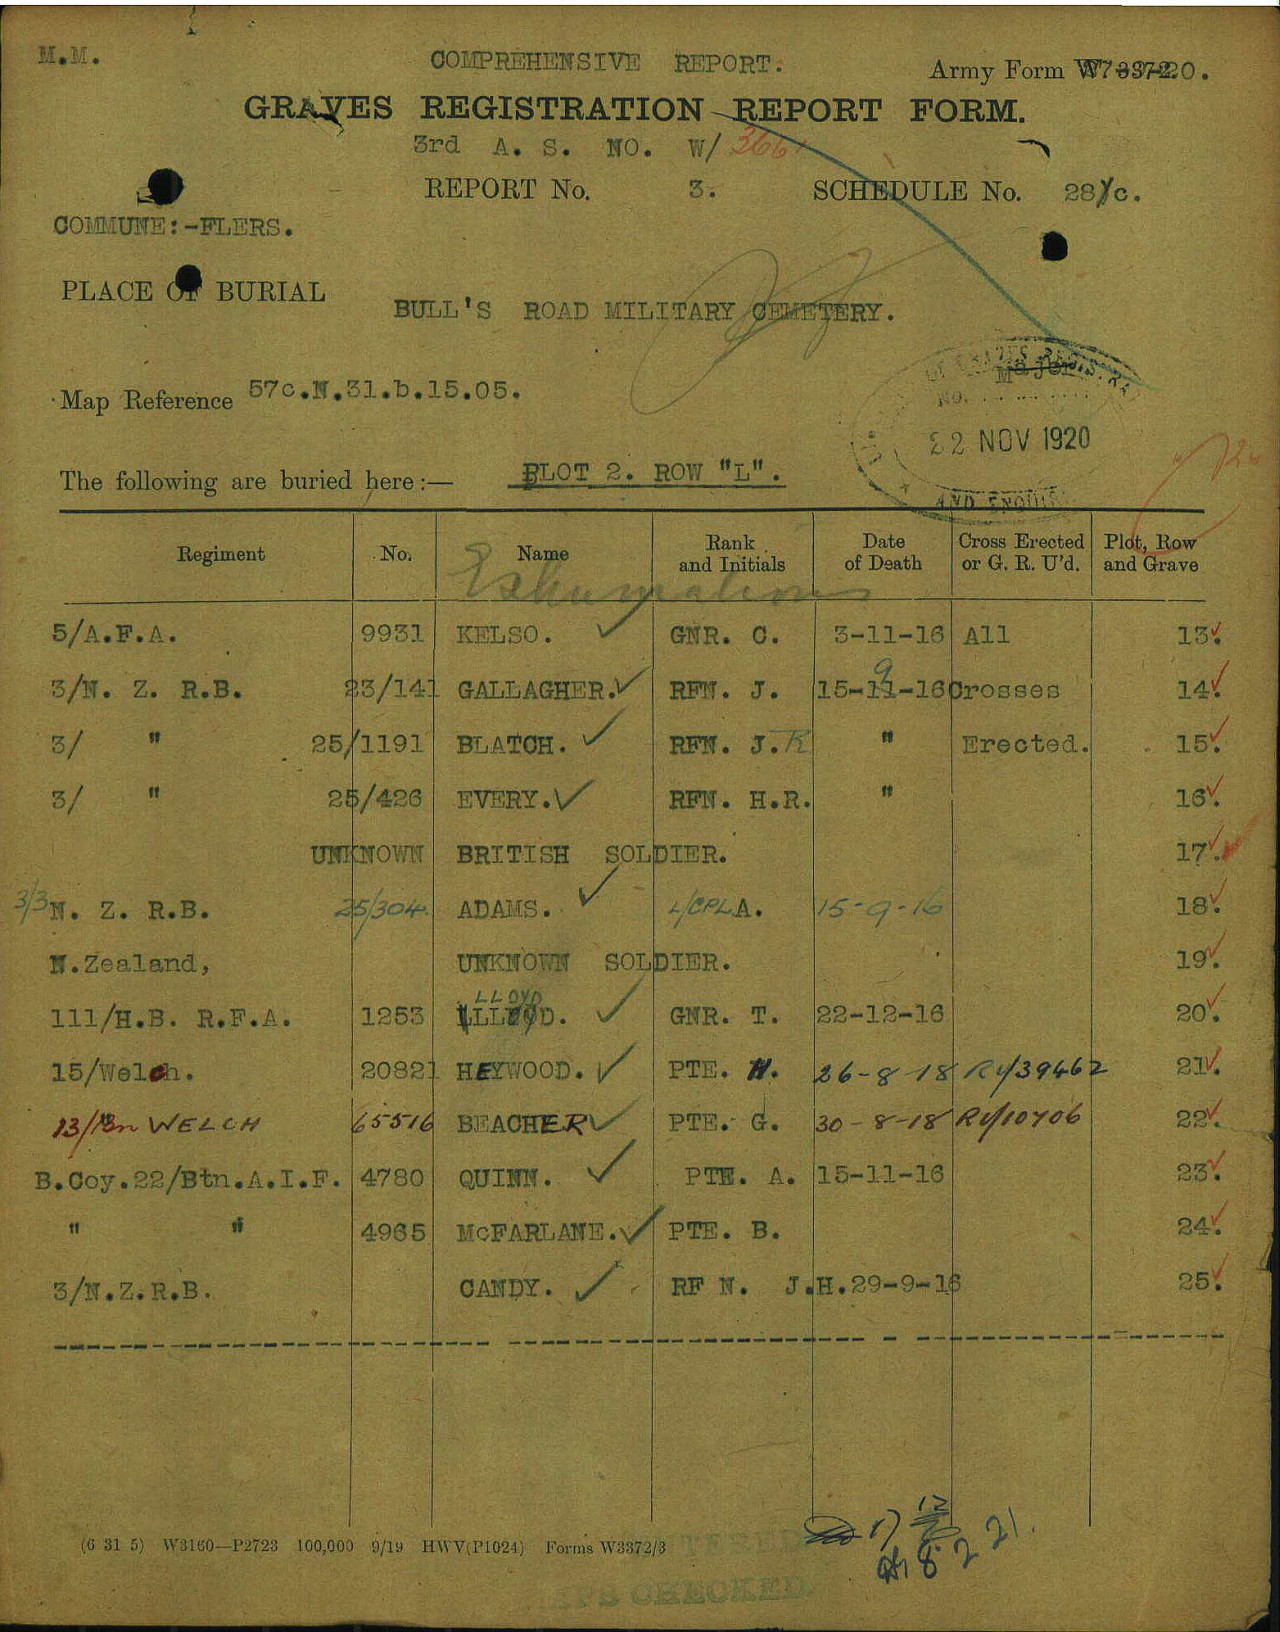 M.M.
COMPREHENSIVE REPORT.
Army Form W7-3372-20.
GRAVES REGISTRATION REPORT FORM.
3rd A. S. NO. W/ 3661
REPORT No. 3. SCHEDULE No. 28/c.
COMMUNE:-FLERS.
PLACE OF BURIAL
BULL'S ROAD MILITARY CEMETERY.
Map Reference 57c.N.31.b.15.05.
Major
NO.
22 NOV 1920
AND ENQUIRIES
The following are buried here:— PLOT 2. ROW "L".
Regiment No. Name Rank and Initials Date of Death Cross Erected or G. R. U'd. Plot, Row and Grave
Exhumations
5/A.F.A. 9931 KELSO. ✓ GNR. C. 3-11-16 All 13.
3/N. Z. R.B. 23/141 GALLAGHER. ✓ RFN. J. 15-9-16 Crosses 14.
3/ " 25/1191 BLATCH. ✓ RFN. J.R " Erected. 15.
3/ " 25/426 EVERY. ✓ RFN. H.R. " 16.
UNKNOWN BRITISH SOLDIER. 17.
3/3 N. Z. R.B. 25/304 ADAMS. ✓ L/CPL A. 15-9-16 18.
N.Zealand, UNKNOWN SOLDIER. 19.
LLOYD
111/H.B. R.F.A. 1253 LLOYD. ✓ GNR. T. 22-12-16 20.
15/Welch. 20821 HEYWOOD. ✓ PTE. H. 26-8-18 R4/39462 21.
13/Bn WELCH 65516 BEACHER ✓ PTE. G. 30-8-18 R4/10706 22.
B.Coy.22/Btn.A.I.F. 4780 QUINN. ✓ PTE. A. 15-11-16 23.
" " 4965 McFARLANE. ✓ PTE. B. 24.
3/N.Z.R.B. CANDY. ✓ RFN. J.H. 29-9-16 25.
(6 31 5) W3160—P2723 100,000 9/19 HWV(P1024) Forms W3372/3
17
12
8 2 21.
CHECKED